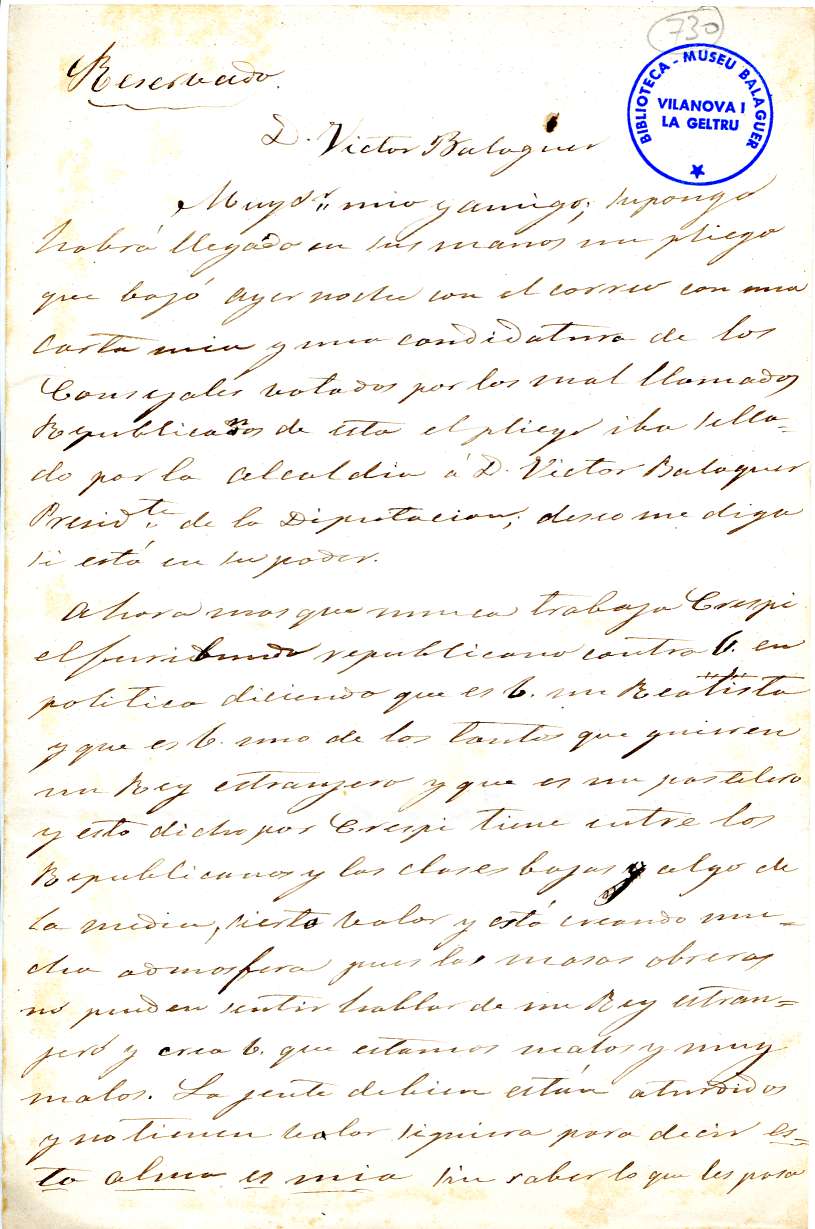 730
BIBLIOTECA - MUSEU BALAGUER
VILANOVA I
LA GELTRU
Reservado.
D. Victor Balaguer
Muy Sr. mio y amigo; supongo
habrá llegado en sus manos un pliego
que bajó ayer noche con el correo con una
carta mia y una candidatura de los
Consejales votados por los mal llamados
Republicanos de esta el pliego iba sella-
do por la Alcaldia á D. Victor Balaguer
Presidte. de la Diputacion; deseo me diga
si está en su poder.
Ahora mas que nunca trabaja Crespi
el furibundo republicano contra V. en
politica diciendo que es V. un Realista
y que es V. uno de los tantos que quieren
un Rey estranjero y que es un pastelero
y esto dicho por Crespi tiene entre los
Republicanos y las clases bajas y algo de
la media, sierto valor y está creando mu-
cha admosfera pues las masas obreras
no pueden sentir hablar de un Rey estran-
jeró y crea V. que estamos malos y muy
malos. La jente de bien están aturdidos
y no tienen valor siquiera para decir es-
ta alma es mia sin saber lo que les pasa